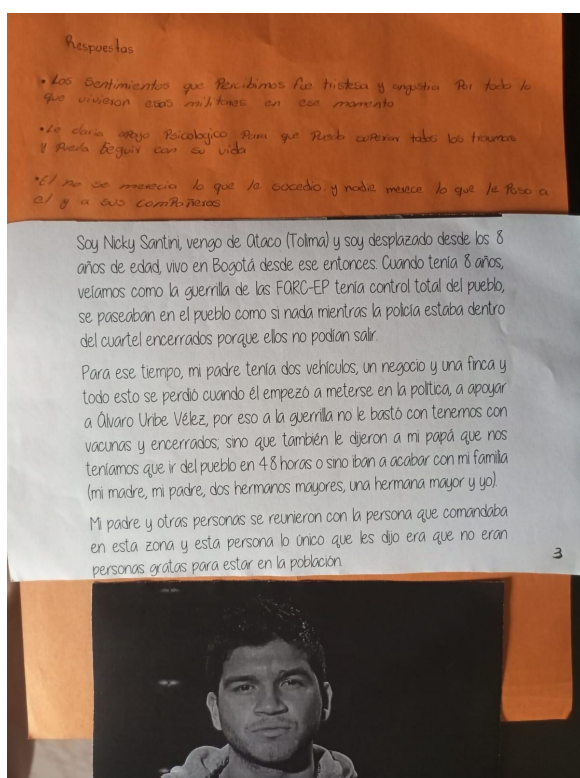 Respuestas
• Los Sentimientos que Percibimos fue tristesa y angustia Por todo lo
que vivieron esos militares en ese momento
• Le daria apoyo Psicologico Para que Pueda superar todos los traumas
y Pueda Seguir con su vida
• El no se merecia lo que le sucedio y nadie merece lo que le Paso a
el y a sus comPañeros
Soy Nicky Santini, vengo de Ataco (Tolima) y soy desplazado desde los 8
años de edad, vivo en Bogotá desde ese entonces. Cuando tenía 8 años,
veíamos como la guerrilla de las FARC-EP tenía control total del pueblo,
se paseaban en el pueblo como si nada mientras la policía estaba dentro
del cuartel encerrados porque ellos no podían salir.
Para ese tiempo, mi padre tenía dos vehículos, un negocio y una finca y
todo esto se perdió cuando él empezó a meterse en la política, a apoyar
a Álvaro Uribe Vélez, por eso a la guerrilla no le bastó con tenernos con
vacunas y encerrados; sino que también le dijeron a mi papá que nos
teníamos que ir del pueblo en 48 horas o sino iban a acabar con mi familia
(mi madre, mi padre, dos hermanos mayores, una hermana mayor y yo).
Mi padre y otras personas se reunieron con la persona que comandaba
en esta zona y esta persona lo único que les dijo era que no eran
personas gratas para estar en la población.
3